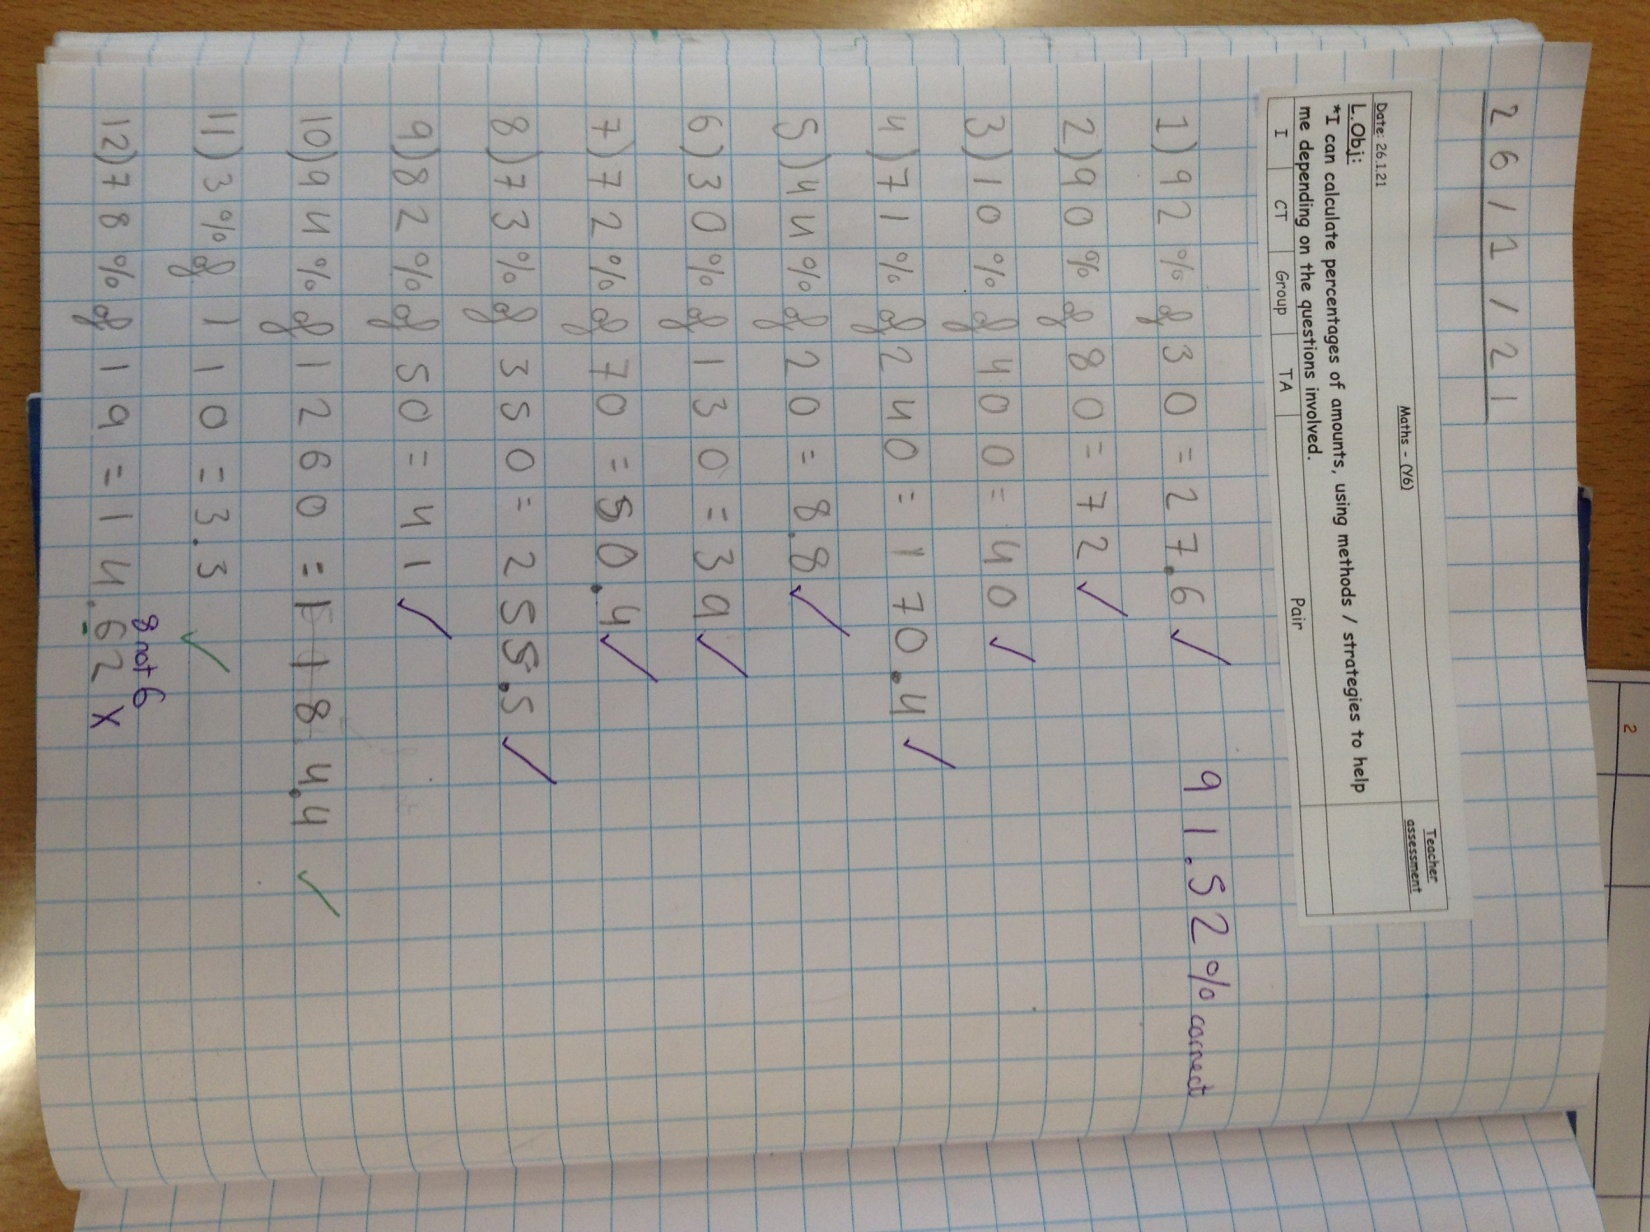 26/1/21
Maths - (Y6)
Teacher assessment
Date: 26.1.21
L.Obj:
*I can calculate percentages of amounts, using methods / strategies to help
me depending on the questions involved.
I CT Group TA Pair
91.52% correct
1) 92% of 30 = 27.6 ✓
2) 90% of 80 = 72 ✓
3) 10% of 400 = 40 ✓
4) 71% of 240 = 170.4 ✓
5) 44% of 20 = 8.8 ✓
6) 30% of 130 = 39 ✓
7) 72% of 70 = 50.4 ✓
8) 73% of 350 = 255.5 ✓
9) 82% of 50 = 41 ✓
10) 94% of 1260 = 1184.4 ✓
11) 3% of 110 = 3.3 ✓
8 not 6
12) 78% of 19 = 14.62 x
2